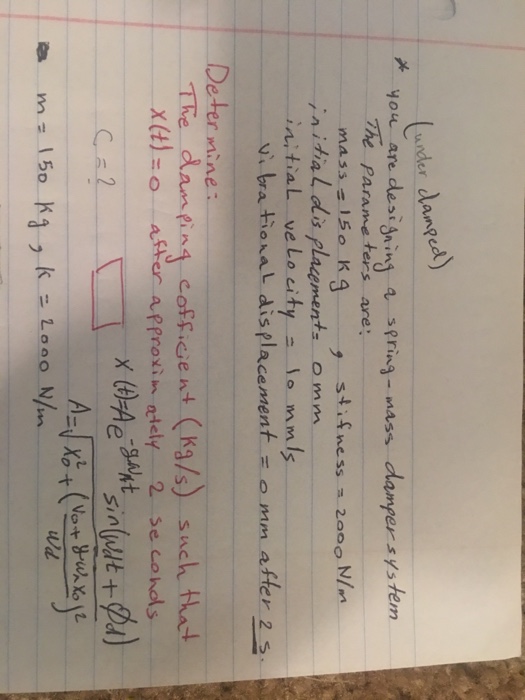 (under damped)
* you are designing a spring-mass damper system
The parameters are:
mass = 150 kg , stifness = 2000 N/m
initial displacement = 0 mm
initial velocity = 10 mm/s
vibrational displacement = 0 mm after 2 s.
Determine:
The damping cofficient (kg/s) such that
x(t)=0 after approximately 2 seconds
C = ? x(t)=Ae^-ζωnt sin(ωdt + Ød)
A=√x₀² + (v₀+ζωnx₀/ωd)²
m = 150 kg , k = 2000 N/m